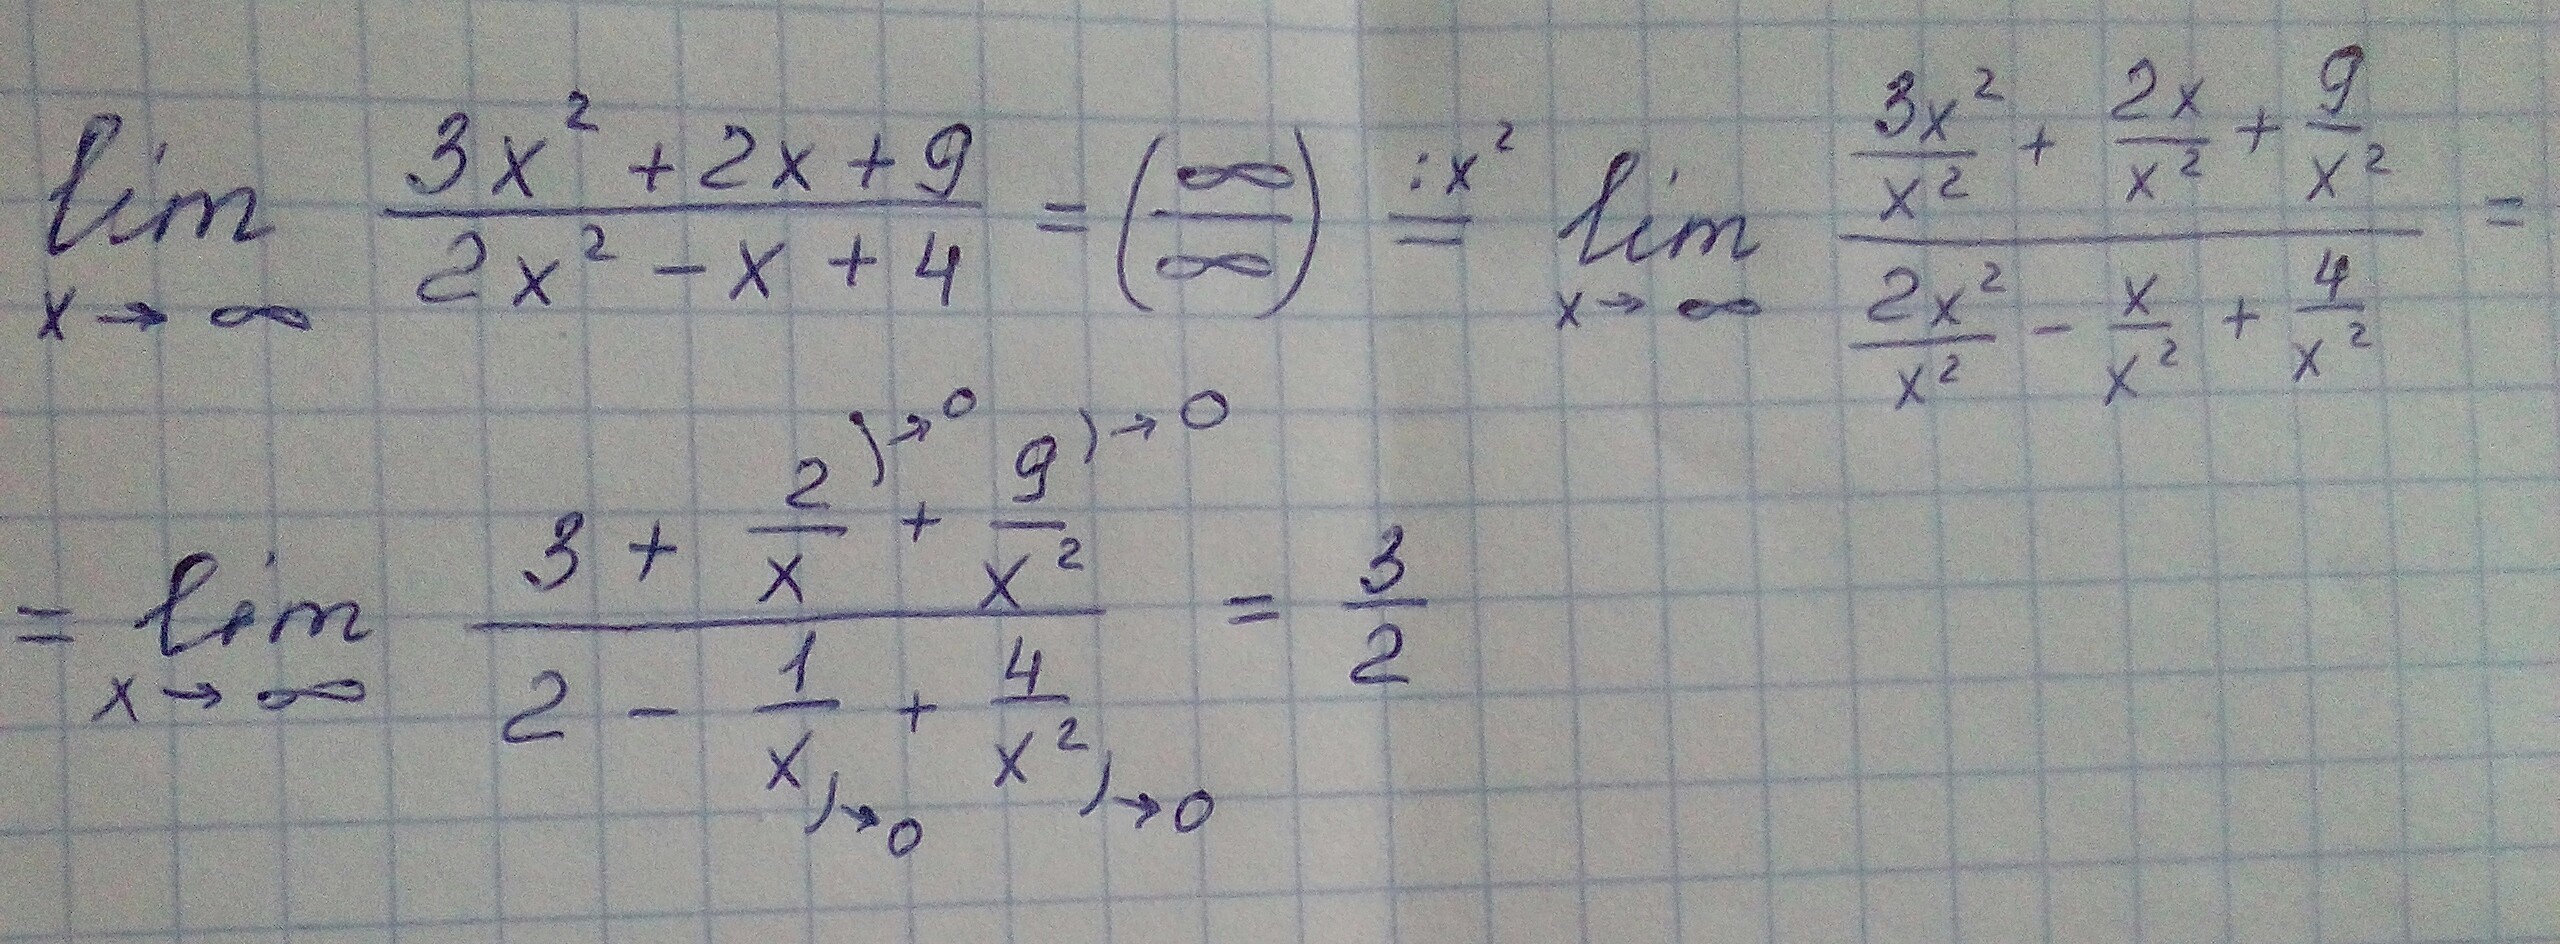 lim x→∞ (3x² + 2x + 9)/(2x² - x + 4) = (∞/∞) =^{:x²} lim x→∞ (3x²/x² + 2x/x² + 9/x²)/(2x²/x² - x/x² + 4/x²) =
= lim x→∞ (3 + 2/x)→0 + 9/x²)→0)/(2 - 1/x)→0 + 4/x²)→0) = 3/2